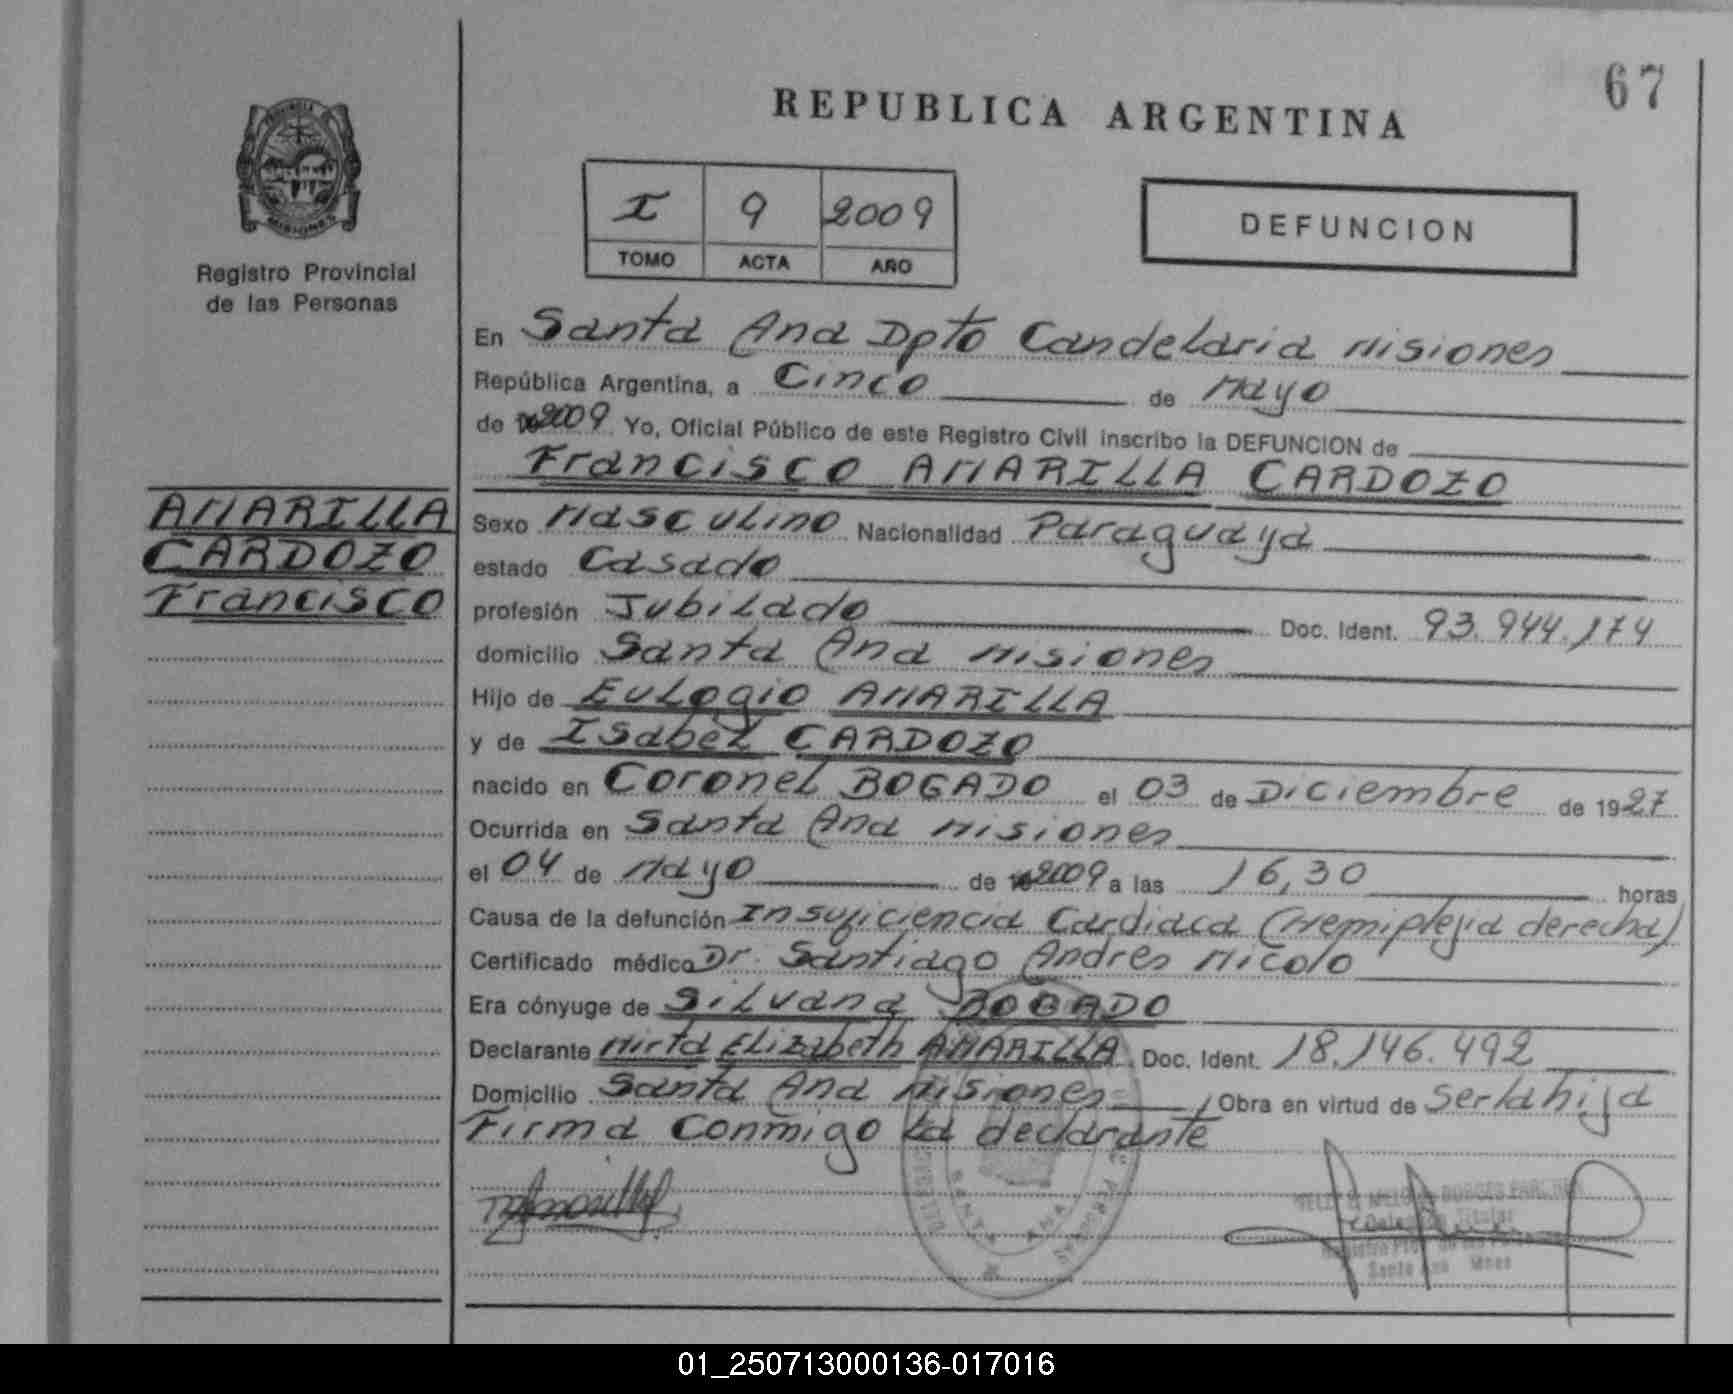 67
REPUBLICA ARGENTINA
PROVINCIA DE
MISIONES
Registro Provincial
de las Personas
I 9 2009
TOMO ACTA AÑO
DEFUNCION
En Santa Ana Dpto Candelaria Misiones
República Argentina, a Cinco de Mayo
de 2009 Yo, Oficial Público de este Registro Civil inscribo la DEFUNCION de
Francisco AMARILLA CARDOZO
AMARILLA
CARDOZO
Francisco
Sexo Masculino Nacionalidad Paraguaya
estado Casado
profesión Jubilado Doc. Ident. 93.944.174
domicilio Santa Ana Misiones
Hijo de Eulogio AMARILLA
y de Isabel CARDOZO
nacido en Coronel BOGADO el 03 de Diciembre de 1927
Ocurrida en Santa Ana Misiones
el 04 de Mayo de 2009 a las 16,30 horas
Causa de la defunción Insuficiencia Cardiaca (Hemiplejia derecha)
Certificado médico Dr. Santiago Andres Nicolo
Era cónyuge de Silvana BOGADO
Declarante Mirta Elizabeth AMARILLA Doc. Ident. 18.146.492
Domicilio Santa Ana Misiones, Obra en virtud de ser la hija
Firma Conmigo La declarante
SANTA ANA
BORGES
Titular
Santa Ana Mnes
01_250713000136-017016